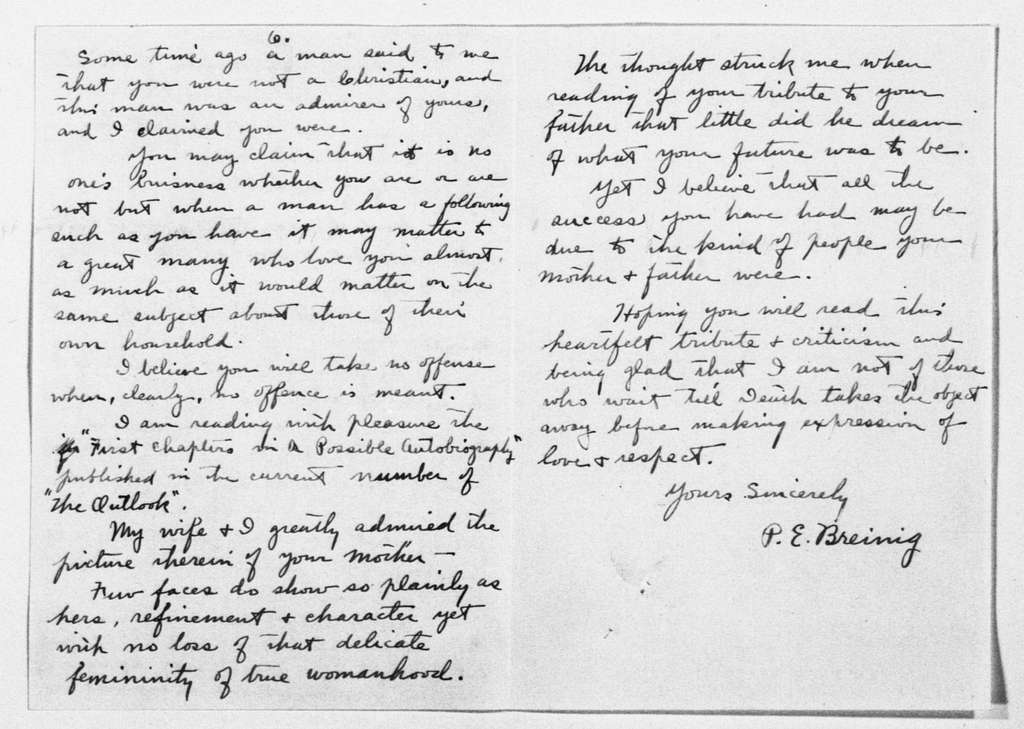 6.
Some time ago a man said to me
that you were not a Christian, and
this man was an admirer of yours,
and I claimed you were.
You may claim that it is no
one's buisness whether you are or are
not but when a man has a following
such as you have it may matter to
a great many who love you almost
as much as it would matter on the
same subject about those of their
own household.
I believe you will take no offense
when, clearly, no offence is meant.
I am reading with pleasure the
"First Chapters in A Possible Autobiography"
published in the current number of
"The Outlook".
My wife & I greatly admired the
picture therein of your mother —
Few faces do show so plainly as
hers, refinement & character yet
with no loss of that delicate
femininity of true womanhood.
The thought struck me when
reading of your tribute to your
father that little did he dream
of what your future was to be.
Yet I believe that all the
success you have had may be
due to the kind of people your
mother & father were.
Hoping you will read this
heartfelt tribute & criticism and
being glad that I am not of those
who wait till Death takes the object
away before making expression of
love & respect.
Yours Sincerely
P. E. Breinig